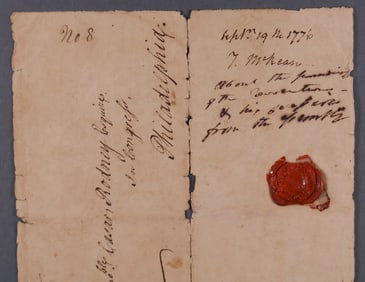 No 8
Caesar Rodney Esquire
In Congress
Philadelphia.
Sept. 19th 1776
T. McKean
About the
of the Convention
& his
from the